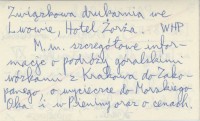 Związkowa drukarnia we
Lwowie, Hotel Żorża. WHP
M. in. szczegółowe infor-
macje o podróży góralskimi
wózkami z Krakowa do Zako-
panego, o wycieczce do Morskiego
Oka i w Pieniny oraz o cenach.